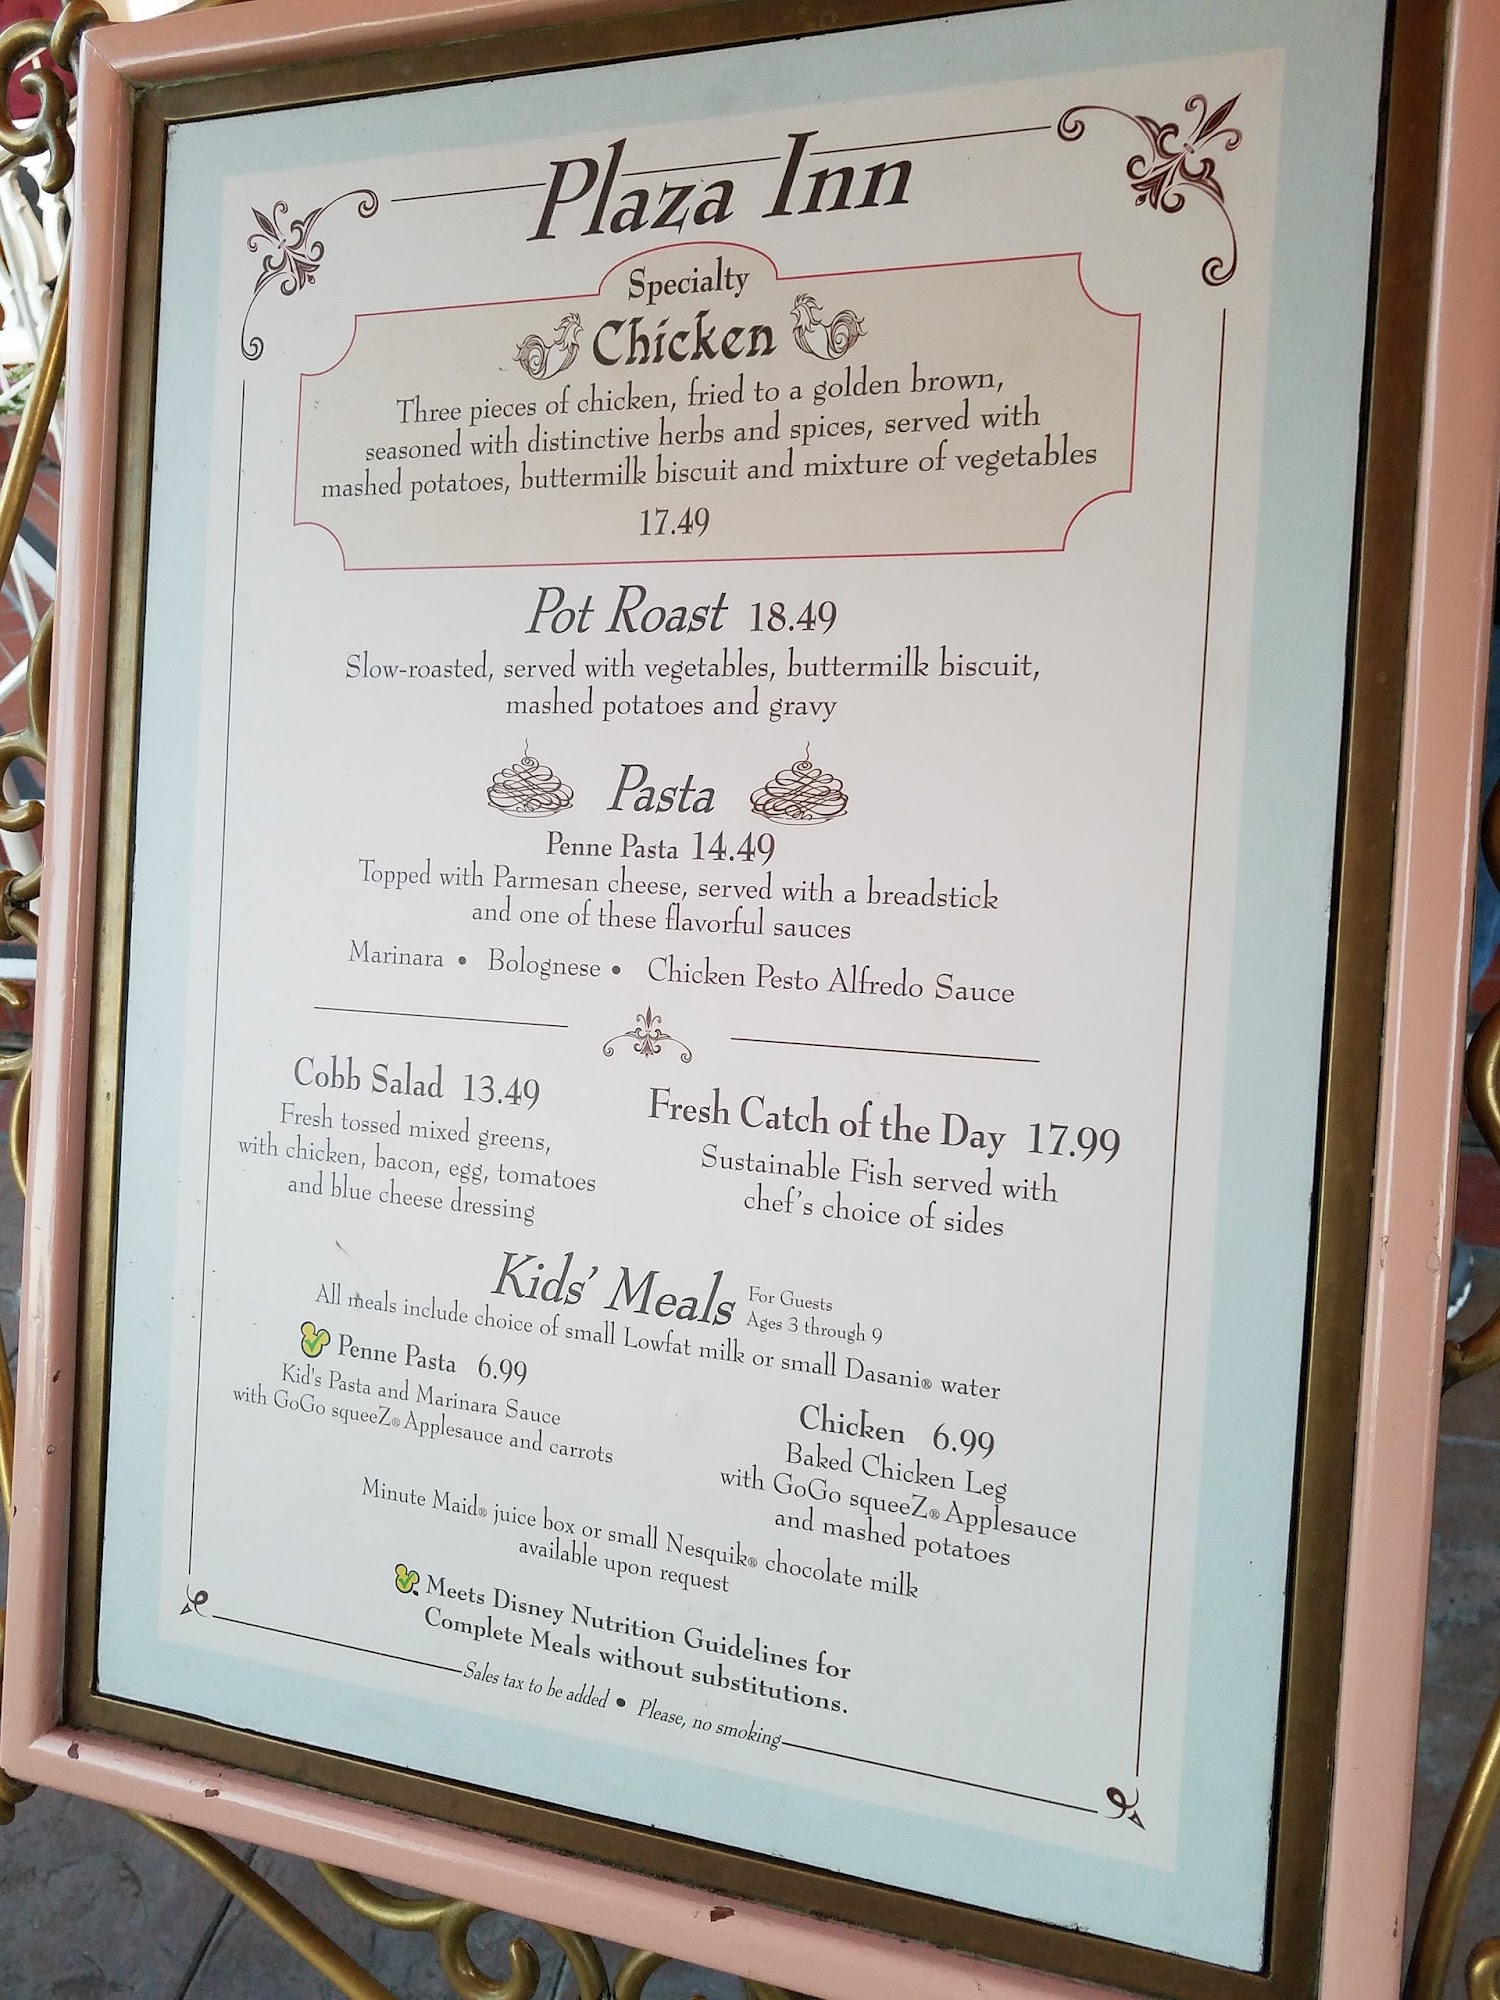 Plaza Inn
Specialty
Chicken
Three pieces of chicken, fried to a golden brown,
seasoned with distinctive herbs and spices, served with
mashed potatoes, buttermilk biscuit and mixture of vegetables
17.49
Pot Roast 18.49
Slow-roasted, served with vegetables, buttermilk biscuit,
mashed potatoes and gravy
Pasta
Penne Pasta 14.49
Topped with Parmesan cheese, served with a breadstick
and one of these flavorful sauces
Marinara • Bolognese • Chicken Pesto Alfredo Sauce
Cobb Salad 13.49
Fresh tossed mixed greens,
with chicken, bacon, egg, tomatoes
and blue cheese dressing
Fresh Catch of the Day 17.99
Sustainable Fish served with
chef's choice of sides
Kids' Meals
For Guests
Ages 3 through 9
All meals include choice of small Lowfat milk or small Dasani® water
Penne Pasta 6.99
Kid's Pasta and Marinara Sauce
with GoGo squeeZ® Applesauce and carrots
Chicken 6.99
Baked Chicken Leg
with GoGo squeeZ® Applesauce
and mashed potatoes
Minute Maid® juice box or small Nesquik® chocolate milk
available upon request
Meets Disney Nutrition Guidelines for
Complete Meals without substitutions.
Sales tax to be added • Please, no smoking